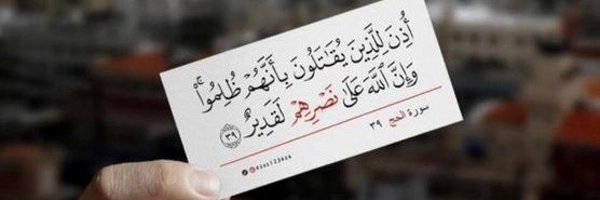 أُذِنَ لِلَّذِينَ يُقَـٰتَلُونَ بِأَنَّهُمْ ظُلِمُوا۟ ۚ
وَإِنَّ ٱللَّهَ عَلَىٰ نَصْرِهِمْ لَقَدِيرٌ ٣٩
سورة الحج ٣٩